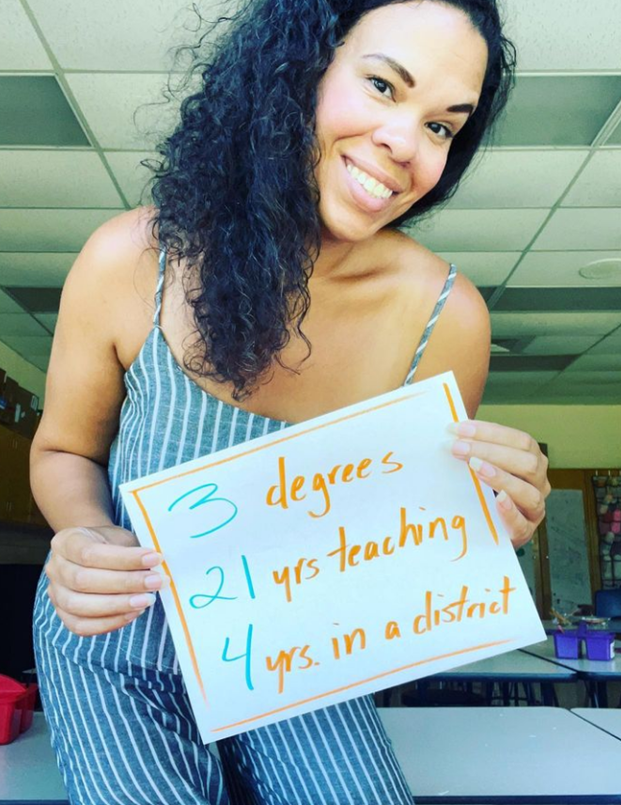 3 degrees
21 yrs teaching
4 yrs. in a district